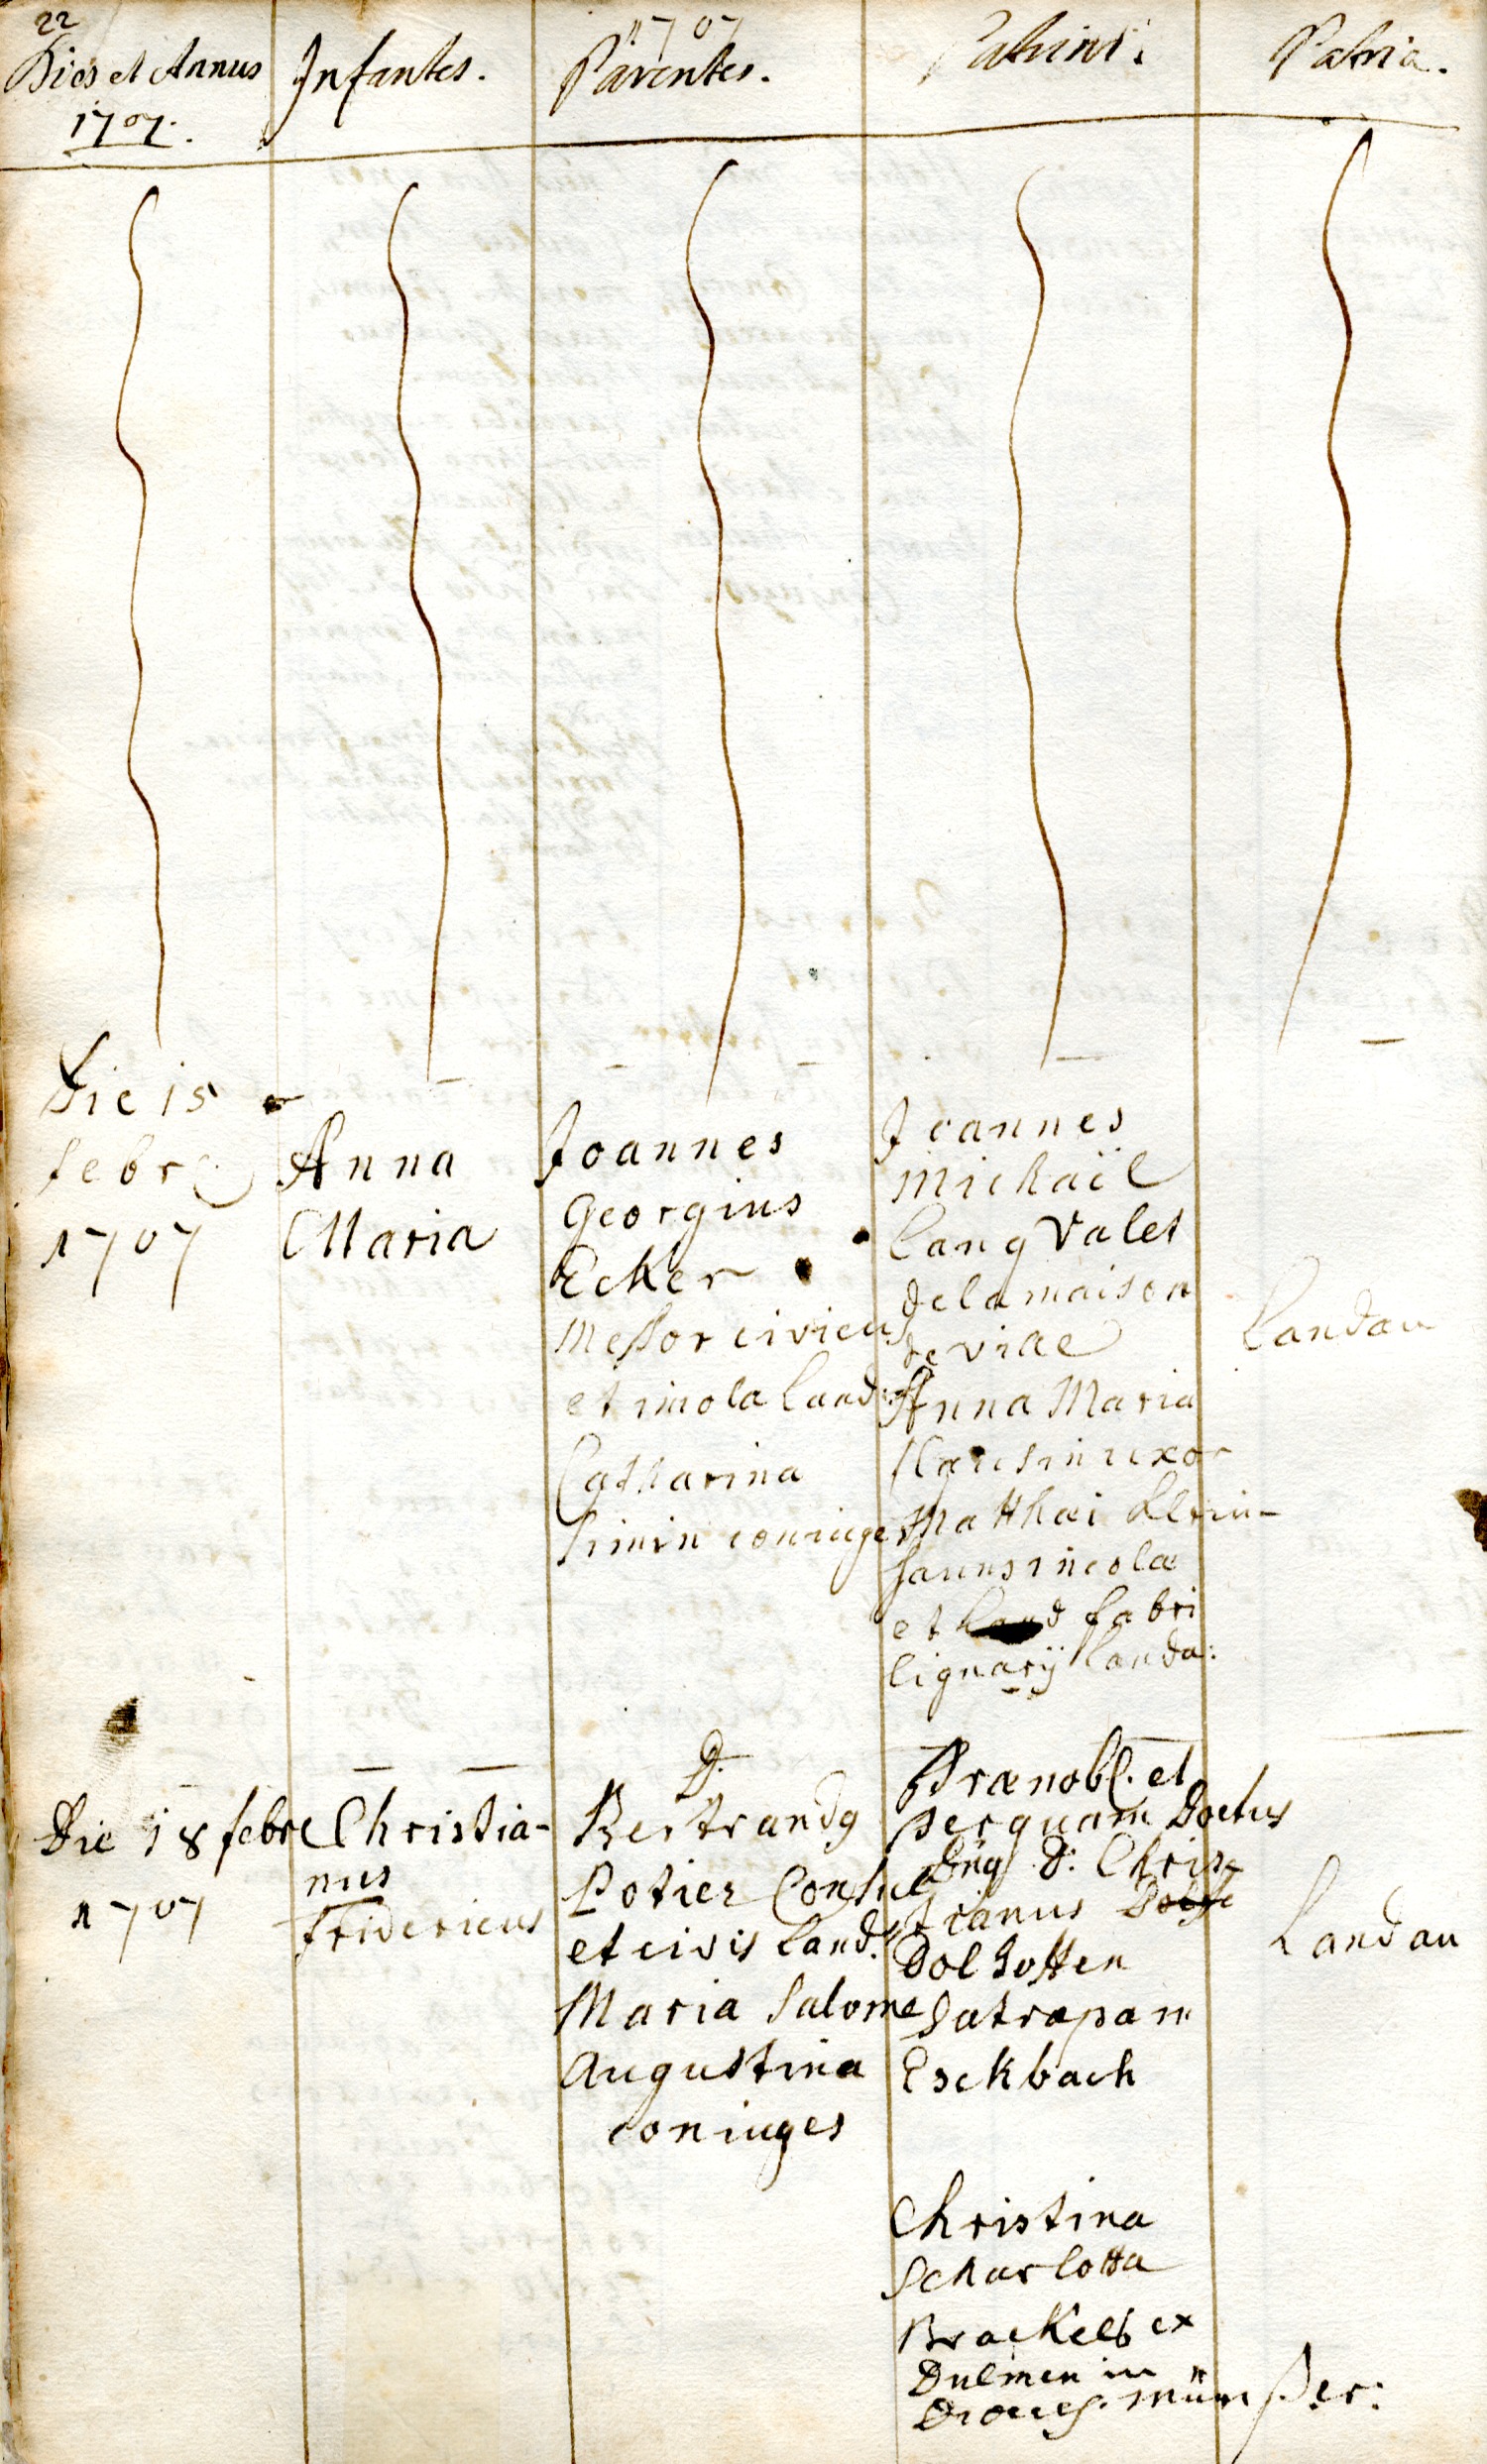 22
Dies et Annus
1707.
Infantes.
1707
Parentes.
Patrini.
Patria.
Die 15
febre
1707
Anna
Maria
Joannes
Georgius
Ecker
Messor civicus
et incola Land:
Catharina
coniuges
Joannes
Michaël
Lang Valet
de la maison
de
Anna Maria
uxor
Matthæi Klein-
hauns incolæ
et Land fabri
lignarÿ Landa:
Landau
Die 18 febre
1707
Christia-
nus
fridericus
D.
Bertrandg
Potier Consul
et civis Land:
Maria Salome
Augustina
coniuges
Prænobl. et
perquam Doctus
Dng D: Chris-
tianus
Dolhotten
Satrapa in
Eschbach
Landau
Christina
Scharlotta
Brackelß ex
Dulmen in
Diœces. münster: